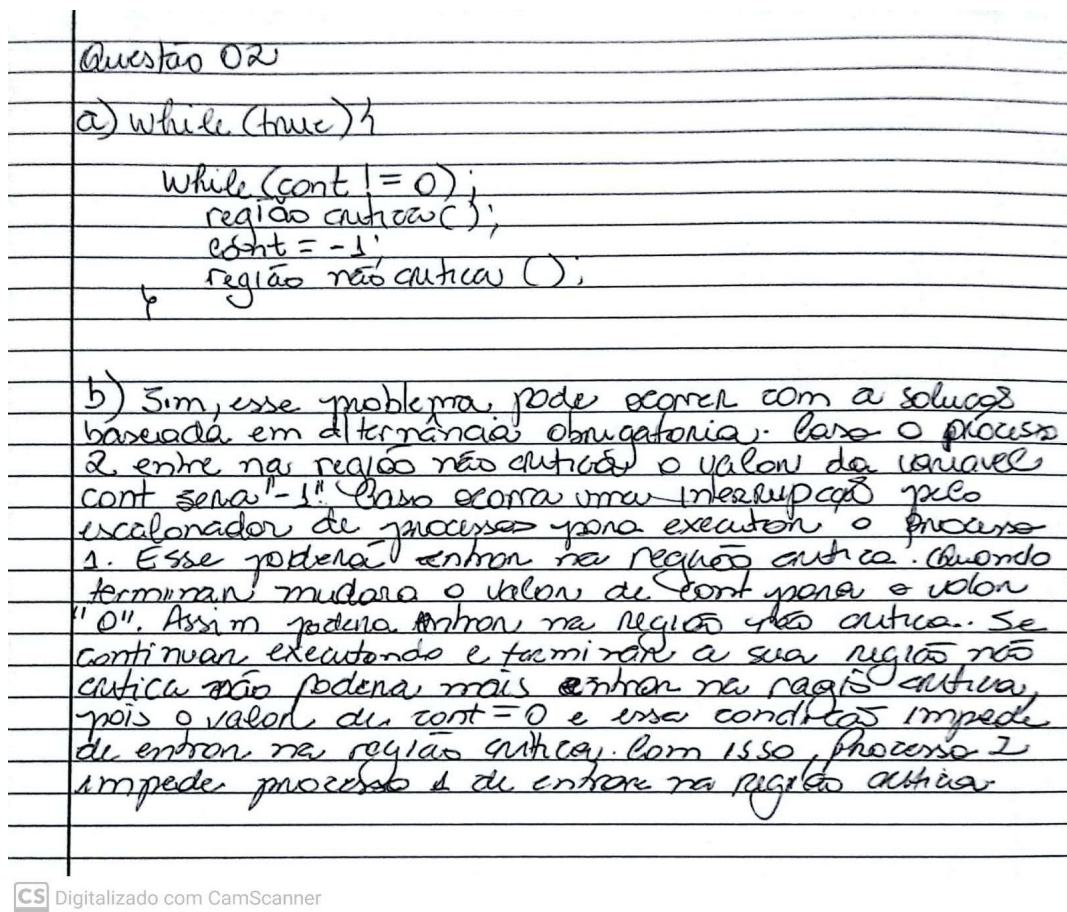 Questão 02
a) while (true) {
while (cont != 0);
região critica ();
cont = -1;
região não critica ();
}
b) Sim, esse problema pode ocorrer com a solução
baseada em alternância obrigatoria. Caso o processo
2 entre na região não critica o valor da variavel
cont sera "-1" Caso ocorra uma interrupção pelo
escalonador de processos para executar o processo
1. Esse poderá entrar na região critica. Quando
terminar mudara o valor de cont para o valor
"0". Assim podera entrar na região não critica. Se
continuar executando e terminar a sua região não
critica não podera mais entrar na região critica,
pois o valor de cont = 0 e essa condição impede
de entrar na região critica. Com isso, processo 2
impede processo 1 de entrar na região critica
CS Digitalizado com CamScanner